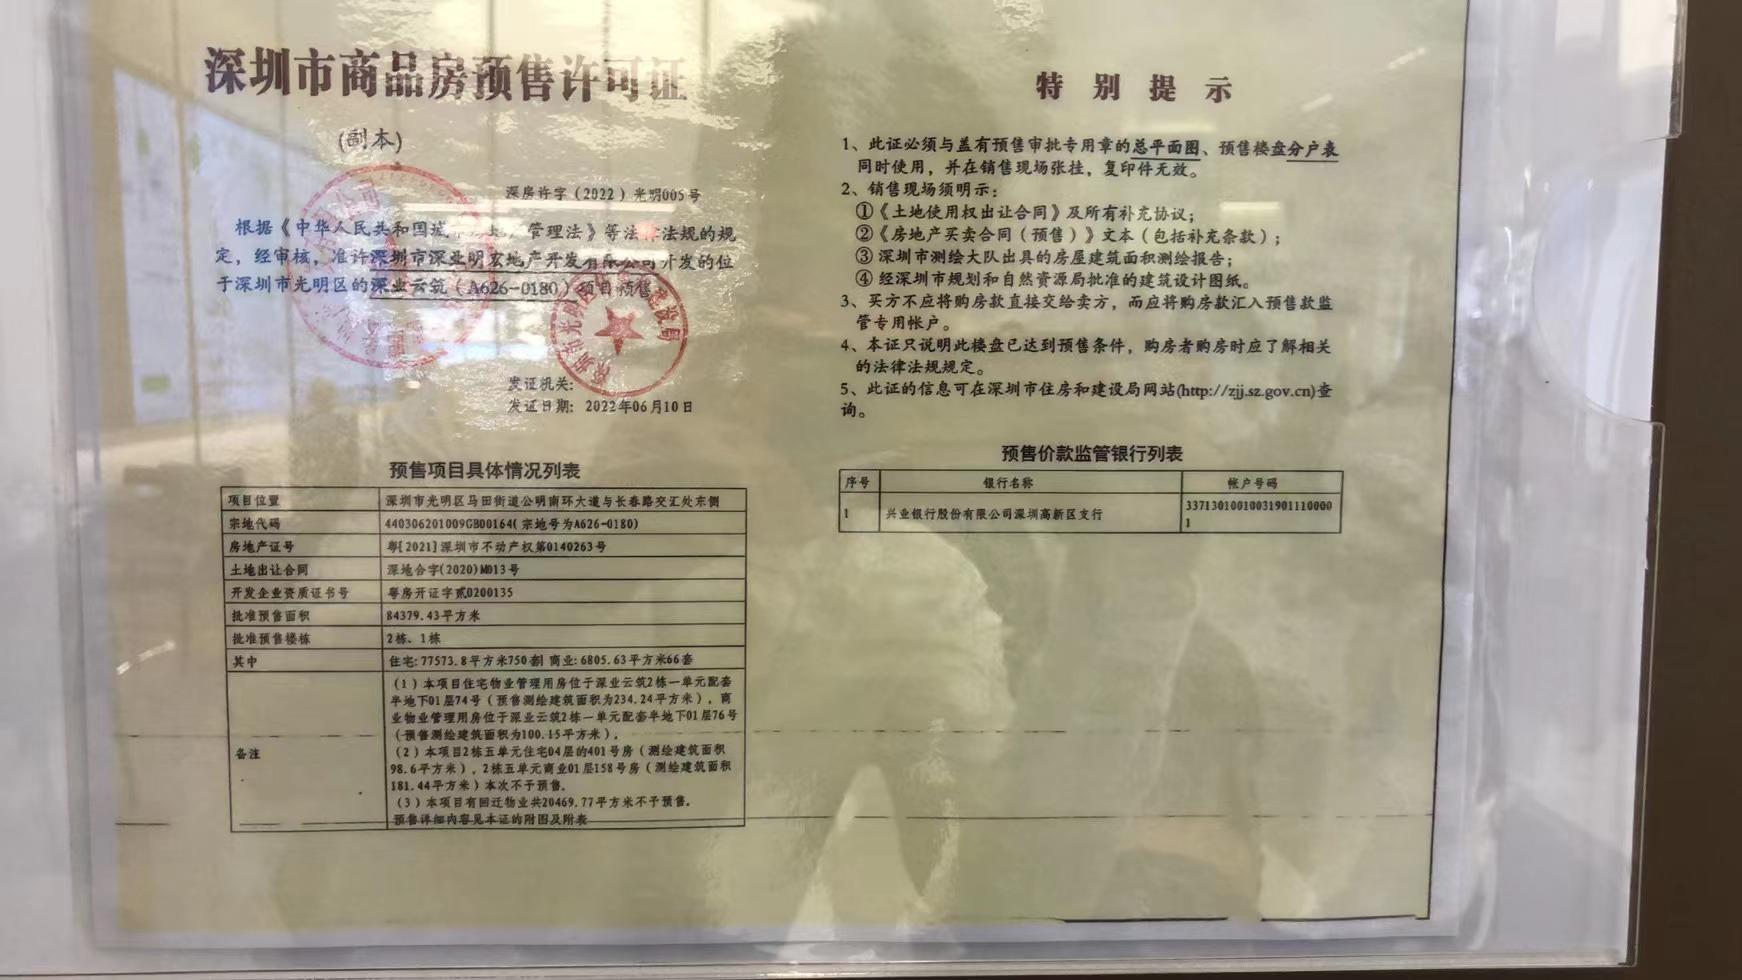 深圳市商品房预售许可证
(副本)
深房许字（2022）光明005号
根据《中华人民共和国城 管理法》等法律法规的规
定，经审核，准许深圳市深业明宏地产开发有限公司开发的位
于深圳市光明区的深业云筑（A626-0180）项目预售
发证机关：
发证日期：2022年06月10日
预售项目具体情况列表
项目位置 深圳市光明区马田街道公明南环大道与长春路交汇处东侧
宗地代码 440306201009GB00164(宗地号为A626-0180)
房地产证号 粤[2021]深圳市不动产权第0140263号
土地出让合同 深地合字(2020)M013号
开发企业资质证书号 粤房开证字贰0200135
批准预售面积 84379.43平方米
批准预售楼栋 2栋、1栋
其中 住宅:77573.8平方米750套| 商业:6805.63平方米66套
备注
（1）本项目住宅物业管理用房位于深业云筑2栋一单元配套
半地下01层74号（预售测绘建筑面积为234.24平方米），商
业物业管理用房位于深业云筑2栋一单元配套半地下01层76号
（预售测绘建筑面积为100.15平方米）。
（2）本项目2栋五单元住宅04层的401号房（测绘建筑面积
98.6平方米），2栋五单元商业01层158号房（测绘建筑面积
181.44平方米）本次不予预售。
（3）本项目有回迁物业共20469.77平方米不予预售。
预售详细内容见本证的附图及附表
特别提示
1、此证必须与盖有预售审批专用章的总平面图、预售楼盘分户表
同时使用，并在销售现场张挂，复印件无效。
2、销售现场须明示：
①《土地使用权出让合同》及所有补充协议；
②《房地产买卖合同（预售）》文本（包括补充条款）；
③深圳市测绘大队出具的房屋建筑面积测绘报告；
④经深圳市规划和自然资源局批准的建筑设计图纸。
3、买方不应将购房款直接交给卖方，而应将购房款汇入预售款监
管专用帐户。
4、本证只说明此楼盘已达到预售条件，购房者购房时应了解相关
的法律法规规定。
5、此证的信息可在深圳市住房和建设局网站(http://zjj.sz.gov.cn)查
询。
预售价款监管银行列表
序号 银行名称 帐户号码
1 兴业银行股份有限公司深圳高新区支行 33713010010031901110000
1